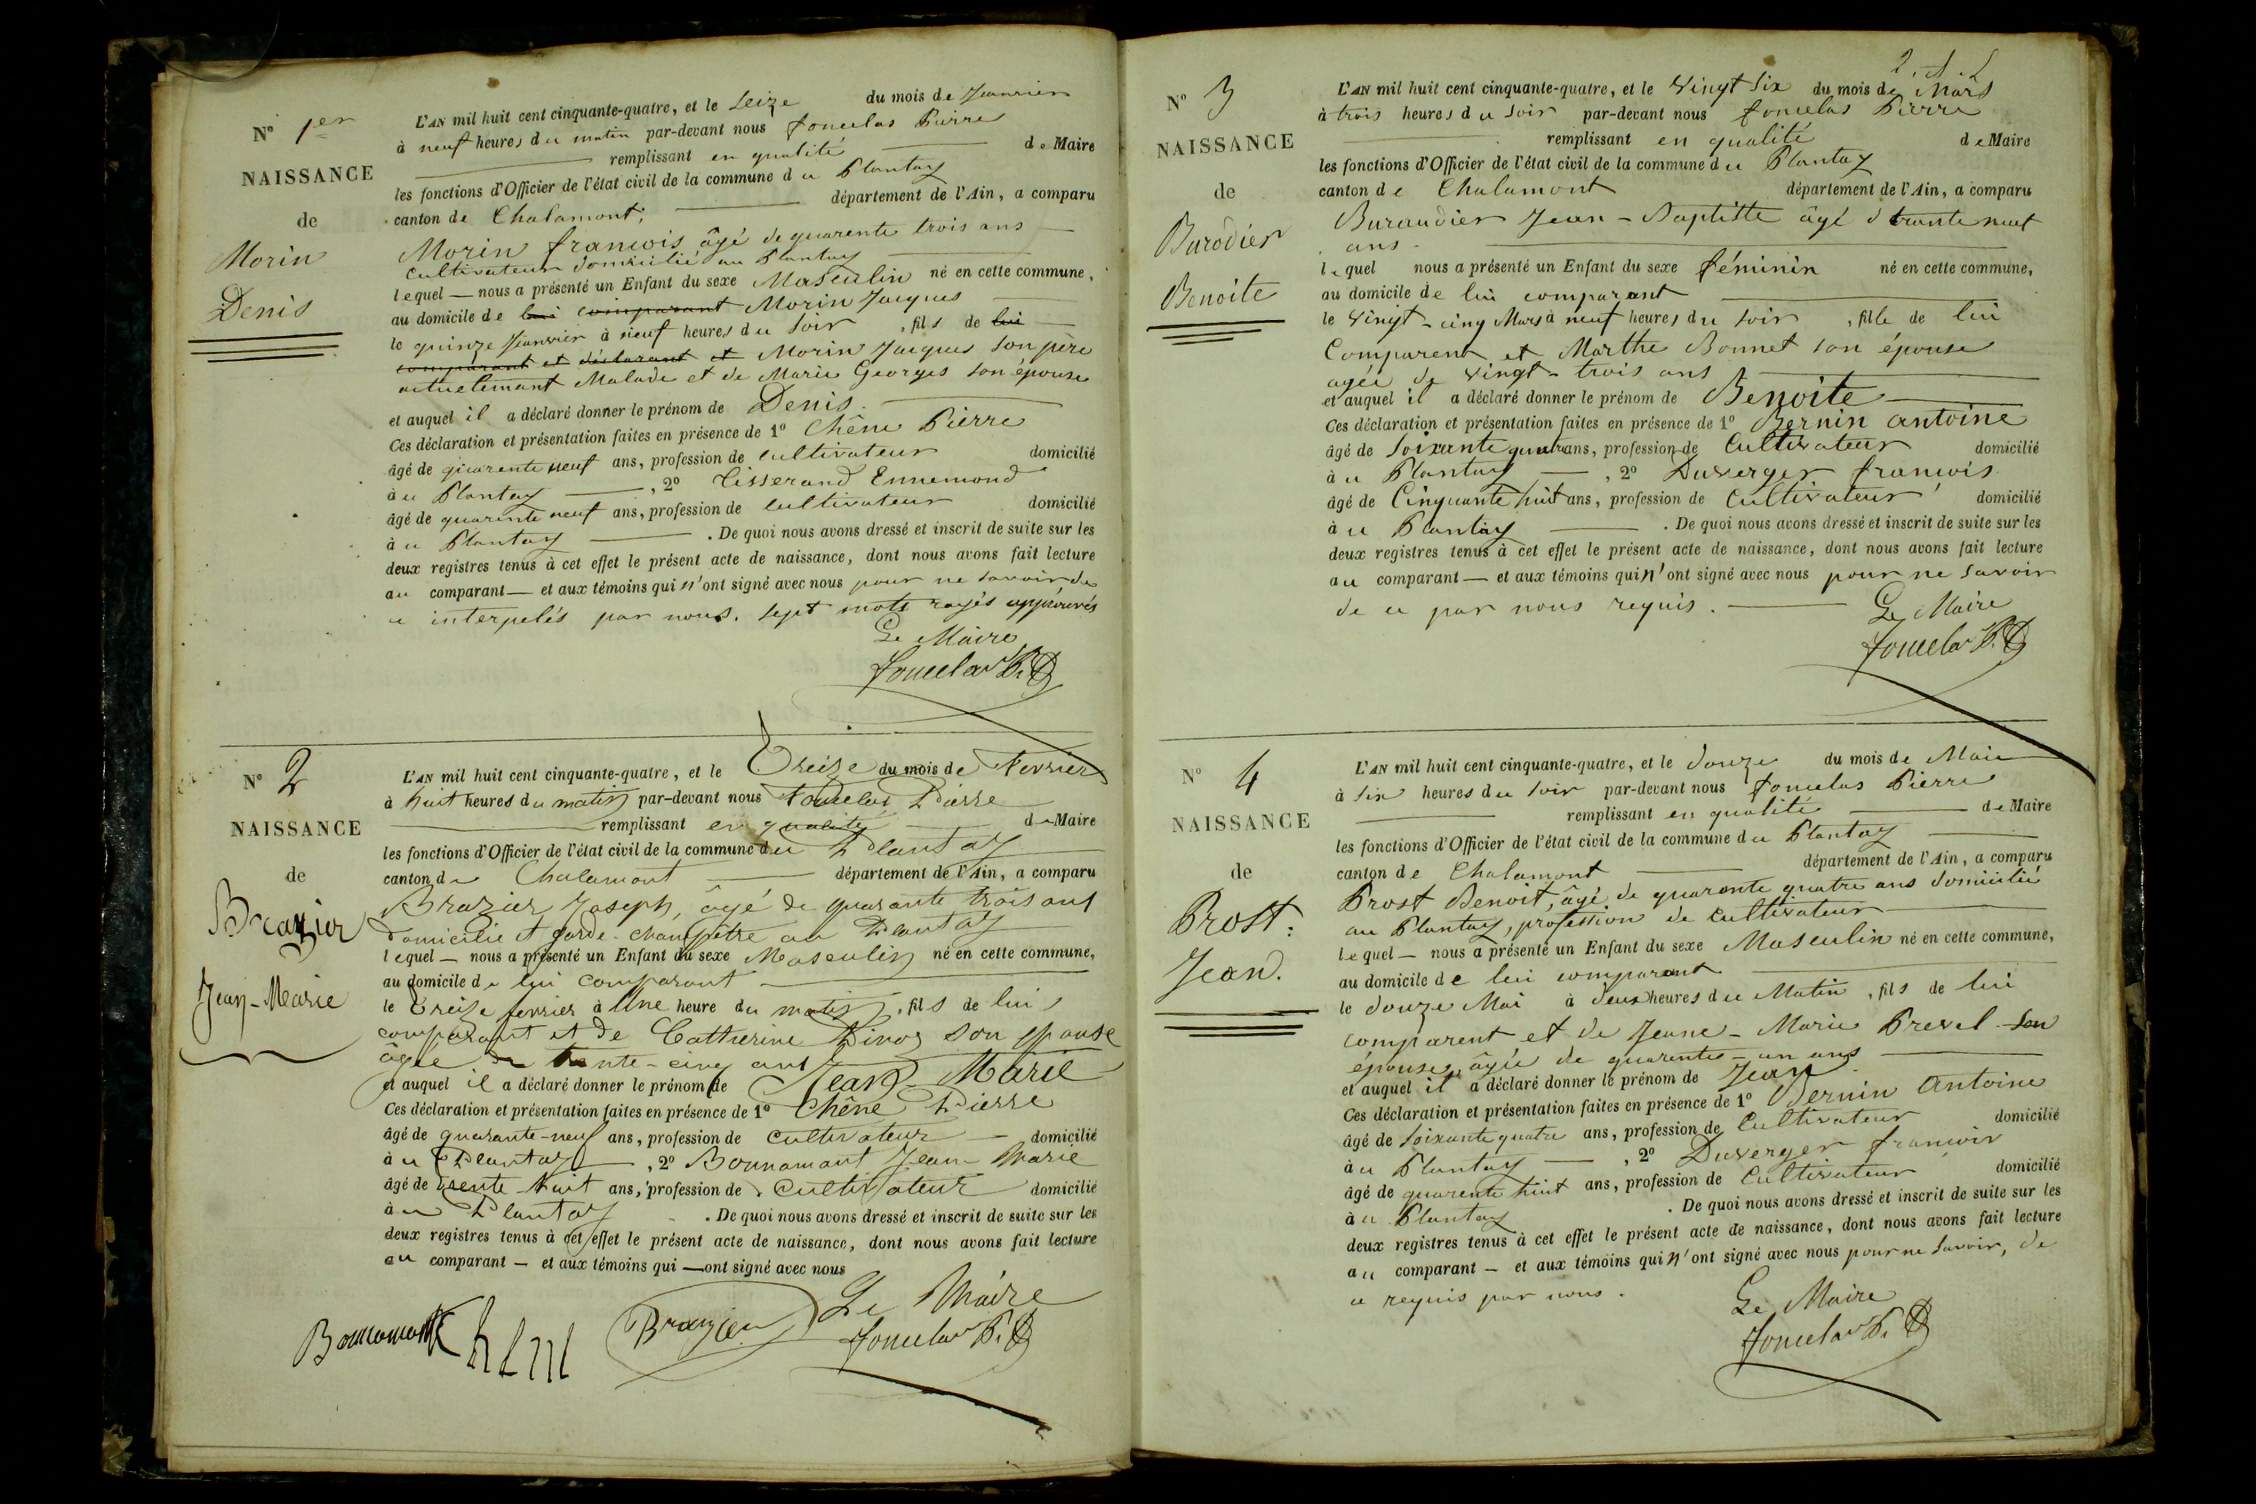 N° 1er
NAISSANCE
de
Morin
Denis
L'AN mil huit cent cinquante-quatre, et le seize du mois de Janvier
à neuf heures du matin par-devant nous Joncelas Pierre
remplissant en qualité de Maire
les fonctions d'Officier de l'état civil de la commune du Plantay
canton de Chalamont, département de l'Ain, a comparu
Morin francois âgé de quarente trois ans
cultivateur domicilié au Plantay
lequel — nous a présenté un Enfant du sexe Masculin né en cette commune,
au domicile de lui comparant Morin Jacques
le quinze Janvier à neuf heures du soir, fils de lui
comparant et déclarant et Morin Jacques son père
actuelemant Malade et de Marie Georges son épouse
et auquel il a déclaré donner le prénom de Denis
Ces déclaration et présentation faites en présence de 1° Chêne Pierre
âgé de quarente neuf ans, profession de cultivateur domicilié
au Plantay, 2° Tisserand Ennemond
âgé de quarente neuf ans, profession de cultivateur domicilié
au Plantay. De quoi nous avons dressé et inscrit de suite sur les
deux registres tenus à cet effet le présent acte de naissance, dont nous avons fait lecture
au comparant — et aux témoins qui n'ont signé avec nous pour ne savoir de
ce interpelés par nous. sept mots rayés approuvés
Le Maire
Joncelas P.
N° 2
NAISSANCE
de
Brazier
Jean-Marie
L'AN mil huit cent cinquante-quatre, et le Treize du mois de Fevrier
à huit heures du matin par-devant nous Joncelas Pierre
remplissant en qualité de Maire
les fonctions d'Officier de l'état civil de la commune du Plantay
canton de Chalamont département de l'Ain, a comparu
Brazier Joseph, âgé de quarante trois ans
domicilié et garde-champêtre au Plantay
lequel — nous a présenté un Enfant du sexe Masculin né en cette commune,
au domicile de lui comparant
le Treize fevrier à Une heure du matin, fils de lui
comparant et de Catherine son epouse
âgée de trente-cinq ans
et auquel il a déclaré donner le prénom de Jean-Marie
Ces déclaration et présentation faites en présence de 1° Chêne Pierre
âgé de quarante-neuf ans, profession de cultivateur — domicilié
au Plantay, 2° Bonnamant Jean Marie
âgé de trente huit ans, profession de cultivateur domicilié
au Plantay. De quoi nous avons dressé et inscrit de suite sur les
deux registres tenus à cet effet le présent acte de naissance, dont nous avons fait lecture
au comparant — et aux témoins qui — ont signé avec nous
Le Maire
Brazier Joncelas P.
N° 3
NAISSANCE
de
Burodier
Benoite
L'AN mil huit cent cinquante-quatre, et le vingt six du mois de Mars
à trois heures du soir par-devant nous Joncelas Pierre
remplissant en qualité de Maire
les fonctions d'Officier de l'état civil de la commune du Plantay
canton de Chalamont département de l'Ain, a comparu
Buraudier Jean-Baptiste âgé d trante neuf
ans
lequel nous a présenté un Enfant du sexe féminin né en cette commune,
au domicile de lui comparant
le vingt-cinq Mars à neuf heures du soir, fille de lui
Comparent et Marthe Bonnet son épouse
agée de vingt-trois ans
et auquel il a déclaré donner le prénom de Benoite
Ces déclaration et présentation faites en présence de 1° Bernin antoine
âgé de soixante quatre ans, profession de Cultivateur domicilié
au Plantay —, 2° Duverger francois
âgé de Cinquante huit ans, profession de cultivateur domicilié
au Plantay. De quoi nous avons dressé et inscrit de suite sur les
deux registres tenus à cet effet le présent acte de naissance, dont nous avons fait lecture
au comparant — et aux témoins qui n'ont signé avec nous pour ne savoir
de ce par nous requis.
Le Maire
Joncelas P.
N° 4
NAISSANCE
de
Prost:
Jean.
L'AN mil huit cent cinquante-quatre, et le douze du mois de Mai
à six heures du soir par-devant nous Joncelas Pierre
remplissant en qualité de Maire
les fonctions d'Officier de l'état civil de la commune du Plantay
canton de Chalamont département de l'Ain, a comparu
Prost Benoit, âgé de quarante quatre ans domicilié
au Plantay, profession de cultivateur
lequel — nous a présenté un Enfant du sexe Masculin né en cette commune,
au domicile de lui comparant
le douze Mai à deux heures du Matin, fils de lui
comparent et de Jeane-Marie Prevel son
épouse, âgée de quarente-un ans
et auquel il a déclaré donner le prénom de Jean
Ces déclaration et présentation faites en présence de 1° Bernin Antoine
âgé de soixante quatre ans, profession de Cultivateur domicilié
au Plantay —, 2° Duverger francois
âgé de quarente huit ans, profession de Cultivateur domicilié
au Plantay. De quoi nous avons dressé et inscrit de suite sur les
deux registres tenus à cet effet le présent acte de naissance, dont nous avons fait lecture
au comparant — et aux témoins qui n'ont signé avec nous pour ne savoir, de
ce requis par nous.
Le Maire
Joncelas P.